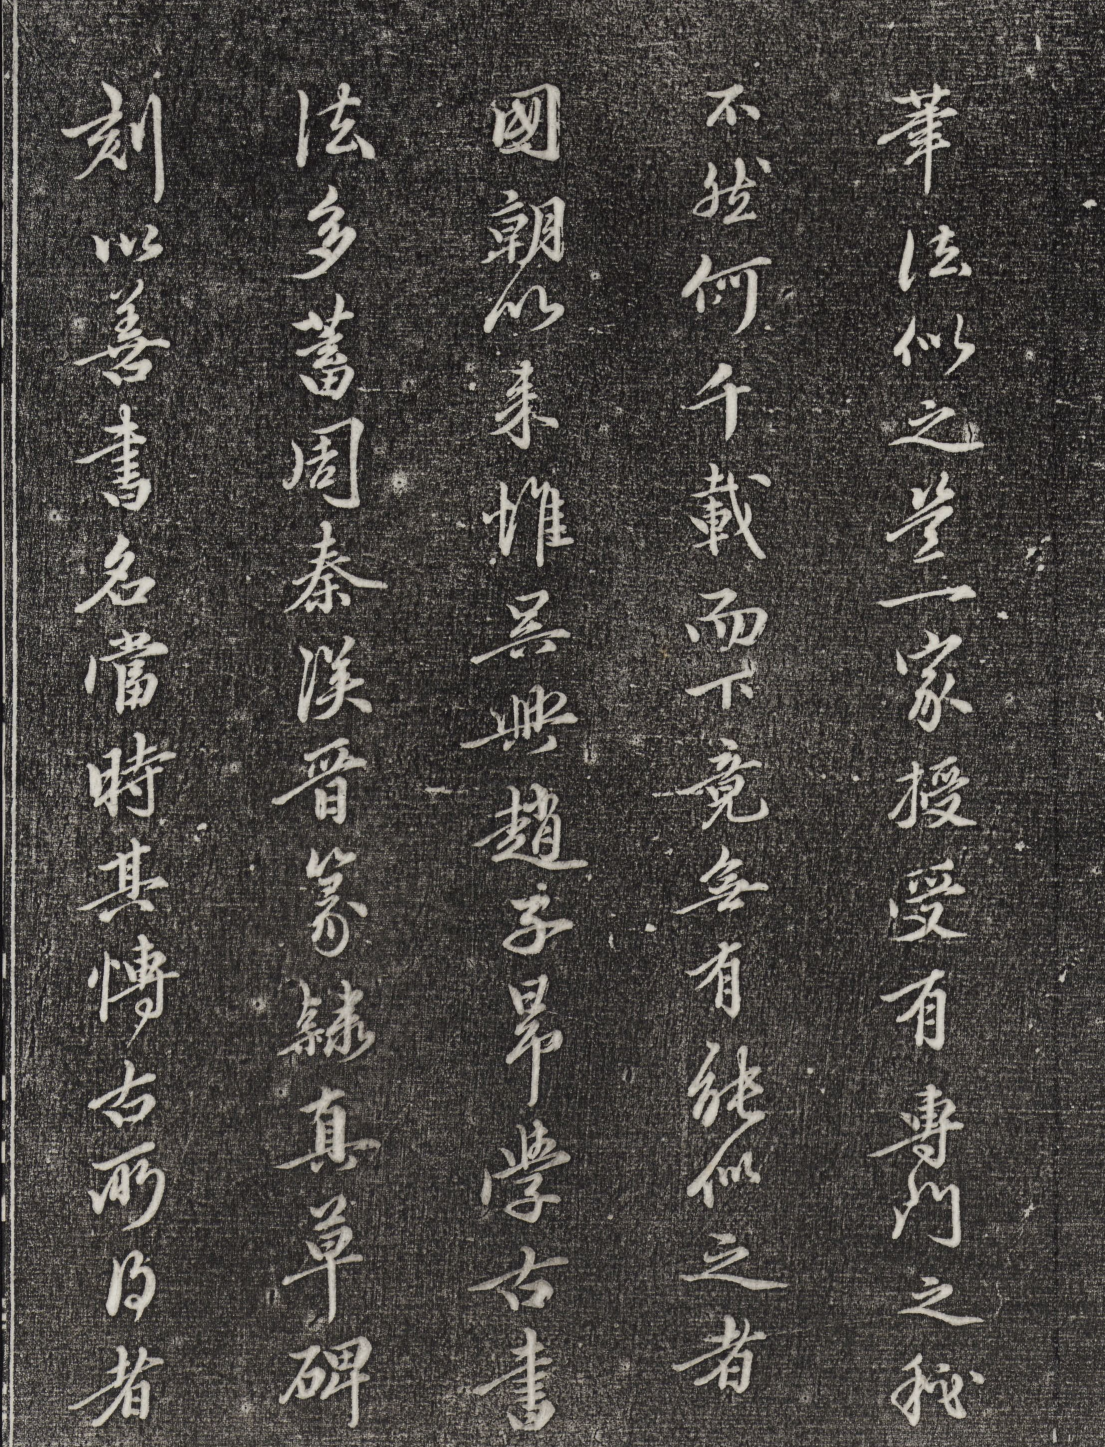 筆法似之豈一家授受有專門之我
不然何千載而下竟無有能似之者
國朝以来惟吴興趙子昂学古書
法多蓄周秦漢晉篆隸真草碑
刻以善書名當時其博古所得者